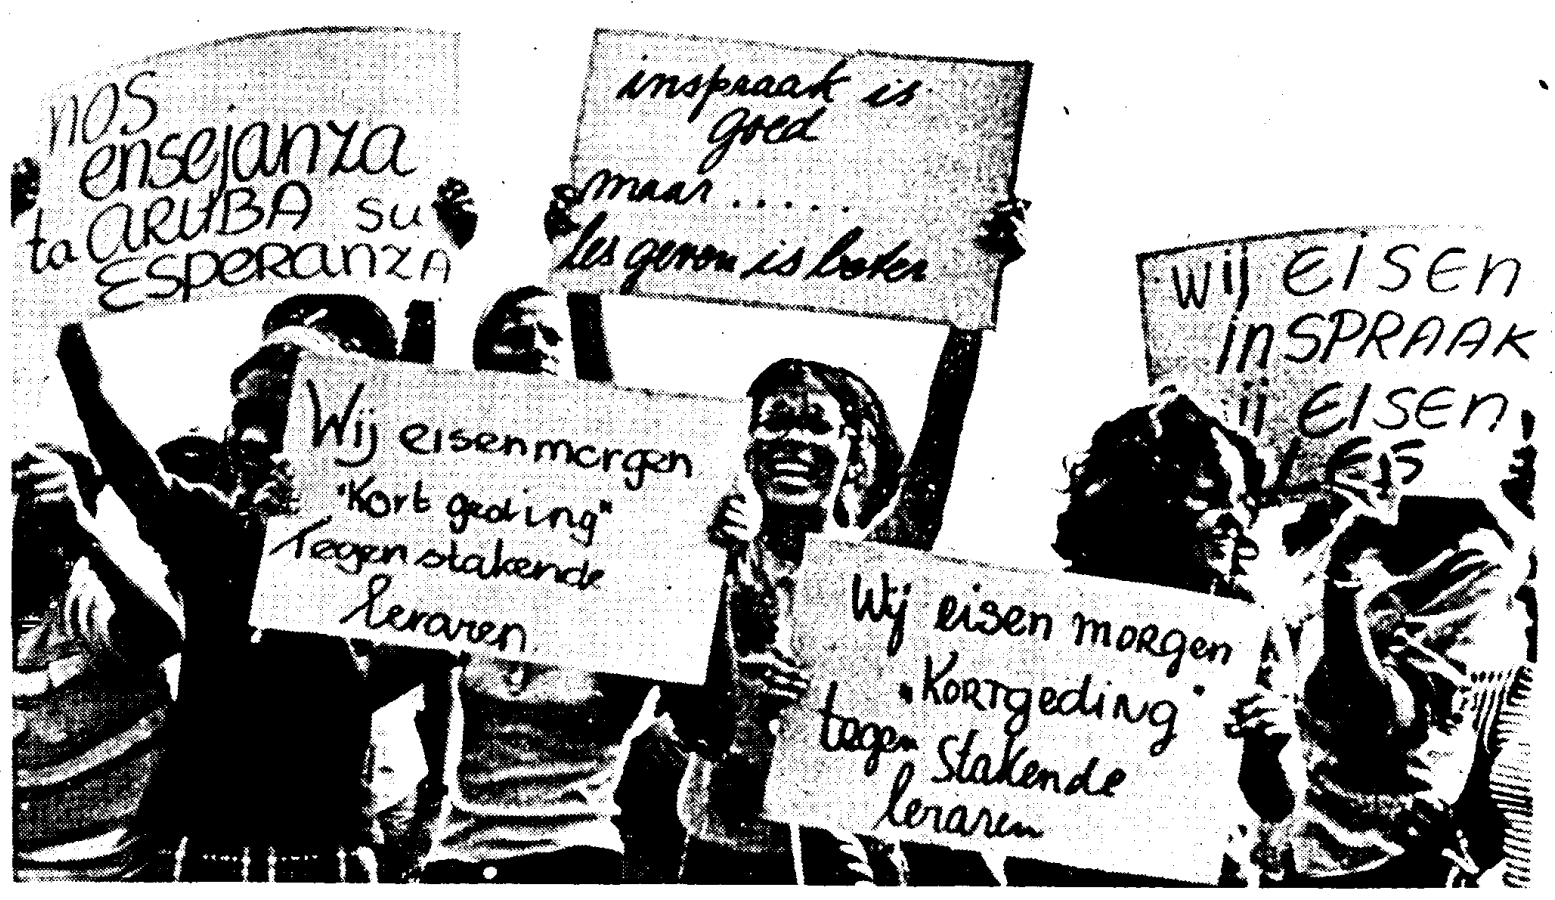 nos
ensejanza
ta ARUBA su
ESPERANZA
inspraak is
goed
maar......
les geven is beter
Wij EISEN
inSPRAAK
ij EISEN
LES
Wij eisen morgen
"Kort geding"
Tegen stakende
leraren
Wij eisen morgen
"KORTgeding"
tegen Stakende
leraren